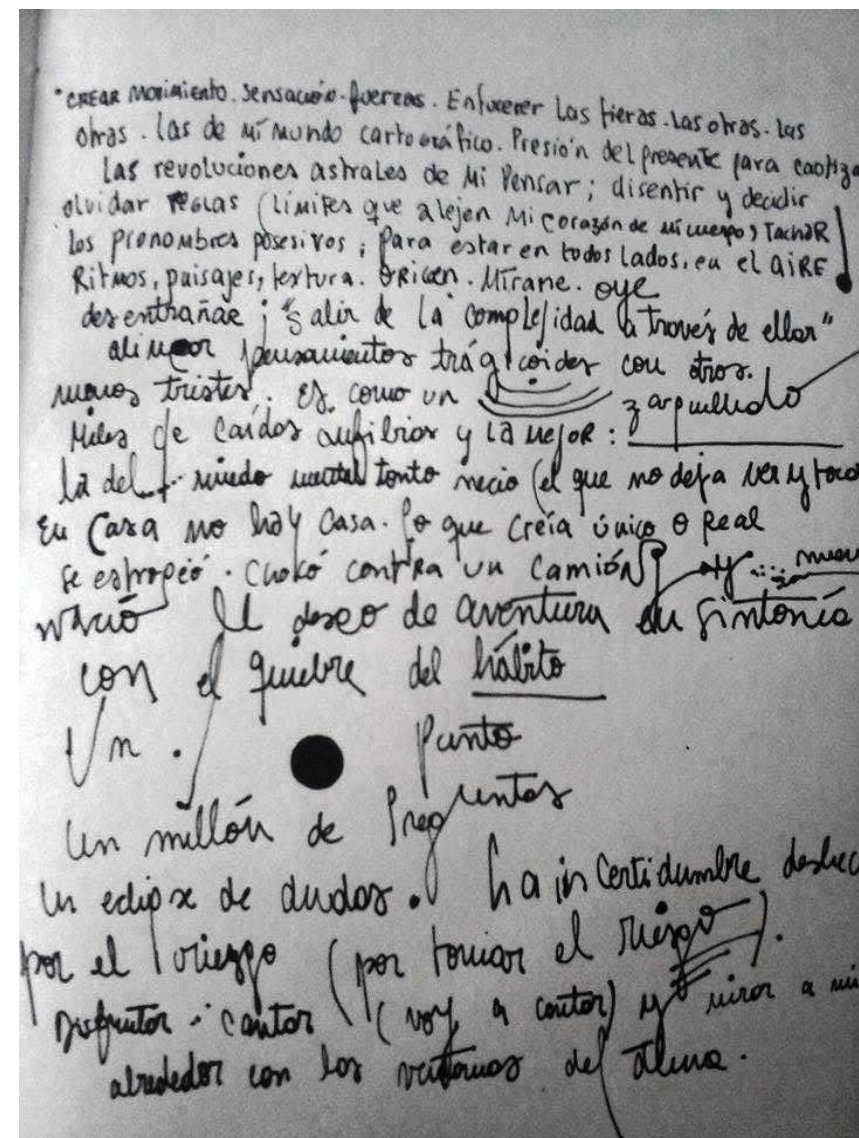 "CREAR Movimiento. Sensación. fuerzas. Enfurecer Las fieras. Las otras. Las
otras. Las de mi mundo cartográfico. Presión del presente para caotiza
Las revoluciones astrales de Mi Pensar; disentir y decidir
olvidar REGLAS (Límites que alejen Mi corazón de mi cuerpo) TACHAR
Los Pronombres posesivos; Para estar en todos Lados, en el AIRE!
Ritmos, paisajes, textura. ORIGEN. Mírame. oye
desentrañar; "Salir de la complejidad a través de ellas"
pensamientos tragicoides con otros.
menos tristes. Es como un zarpullido
Miles de caídas anfibias y La mejor:
La del miedo mental tonto necio (el que no deja ver y toca
En Casa no hay Casa. Lo que creía único o Real
se estropeó. Chokó contra un Camión ay.... nuev
nació el deseo de aventura en sintonía
con el quiebre del hábito
Un . ● Punto
Un millón de Preguntas
Un eclipse de dudas. La incertidumbre deshec
por el riesgo (por tomar el riesgo).
Disfrutar · cantar (voy a cantar) y mirar a mi
alrededor con las ventanas del alma.